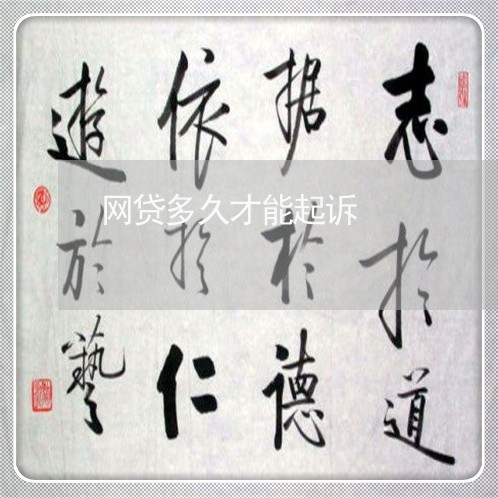 志於道
据於德
依於仁
遊於藝
网贷多久才能起诉